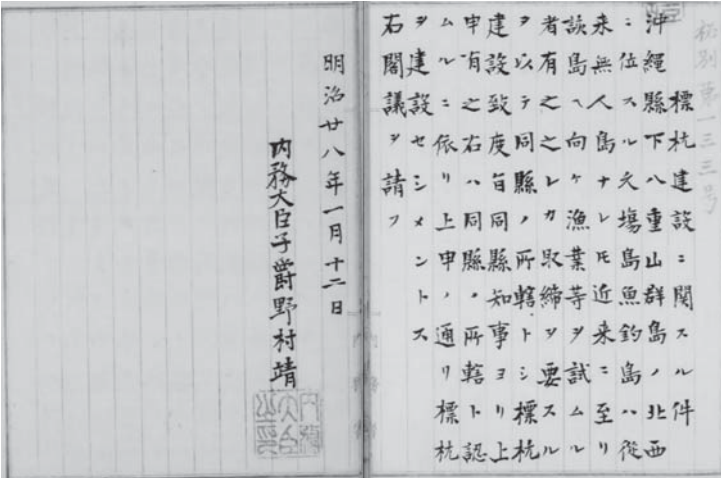 秘別第一三三号
標杭建設ニ関スル件
沖縄縣下八重山群島ノ北西
ニ位スル久場島魚釣島ハ従
来無人島ナレ𪜈近来ニ至リ
該島ヘ向ケ漁業等ヲ試ムル
者有之之レカ取締ヲ要スル
ヲ以テ同縣ノ所轄トシ標杭
建設致度旨同縣知事ヨリ上
申有之右ハ同縣ノ所轄ト認
ムルニ依リ上申ノ通リ標杭
ヲ建設セシメントス
右閣議ヲ請フ
明治廿八年一月十二日
内務大臣子爵野村靖
内務大臣之印